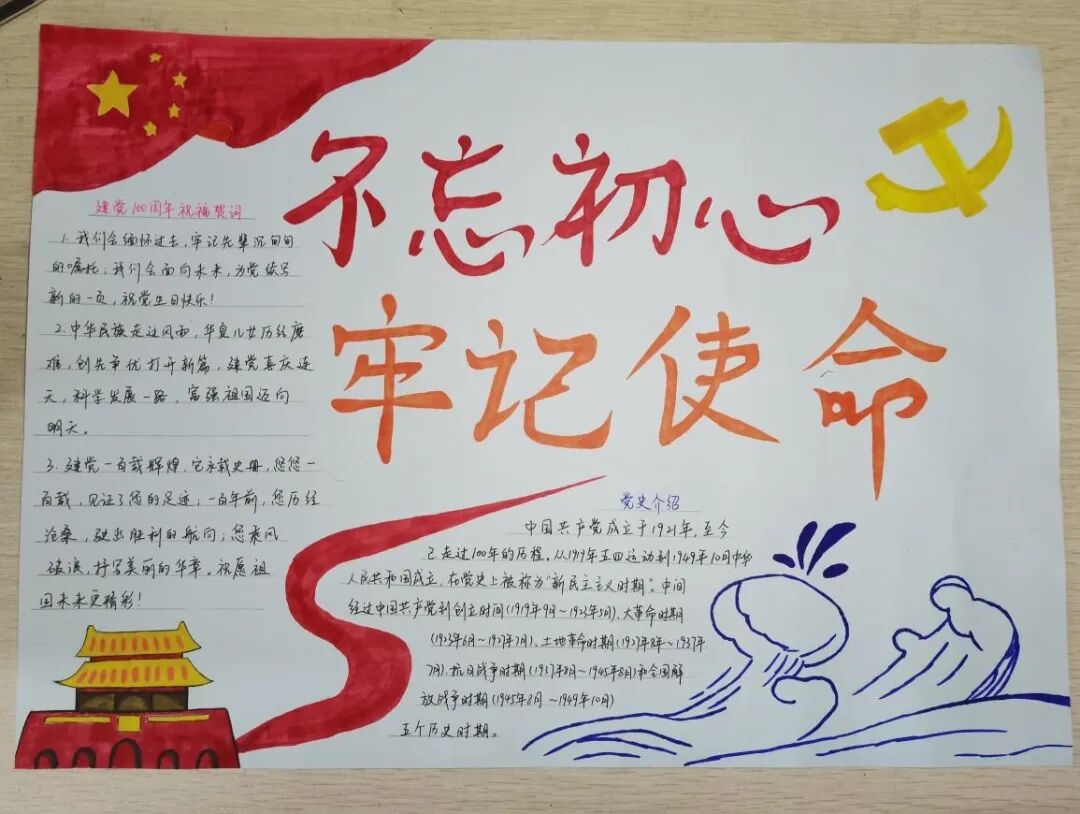 不忘初心
牢记使命
建党100周年祝福贺词
1.我们会缅怀过去,牢记先辈沉甸甸
的嘱托;我们会面向未来,为党续写
新的一页,祝党生日快乐!
2.中华民族走过风雨,华皇儿女历经磨
难,创先争优打开新篇,建党喜庆连
天,科学发展一路,富强祖国迈向
明天。
3.建党一百载辉煌,它永载史册,您您一
百载,见证了您的足迹;一百年前,您历经
沧桑,驶出胜利的航向;您乘风
破浪,抒写美丽的华章。祝愿祖
国未来更精彩!
党史介绍
中国共产党成立于1921年,至今
已走过100年的历程。从1919年五四运动到1949年10月中华
人民共和国成立,在党史上被称为"新民主主义时期"。中间
经过中国共产党创立时间(1919年9月~1923年5月),大革命时期
(1923年6月~1927年7月),土地革命时期(1927年8月~1937年
7月),抗日战争时期(1937年8月~1945年8月)和全国解
放战争时期(1945年8月~1949年10月)
五个历史时期。